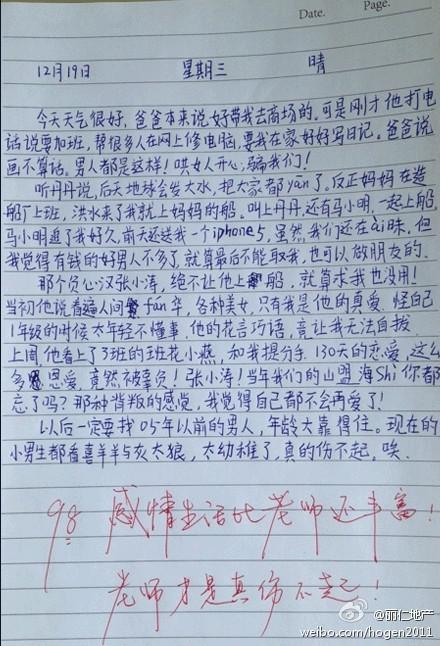 Date.
Page.
12月19日 星期三 晴
今天天气很好,爸爸本来说好带我去商场的。可是刚才他打电
话说要加班,帮很多人在网上修电脑,要我在家好好写日记。爸爸说
画不算话。男人都是这样!哄女人开心,骗我们!
听丹丹说,后天地球会发大水,把大家都yān了。反正妈妈在造
船厂上班,洪水来了我就上妈妈的船。叫上丹丹,还有马小明,一起上船。
马小明追了我好久,前天还送我一个iphone5,虽然我们还在ài昧,但
我觉得有钱的好男人不多了,就算最后不能取我,也可以做朋友的。
那个负心汉张小涛,绝不让他上船,就算求我也没用!
当初他说看遍人间fán华,各种美女,只有我是他的真爱。怪自己
1年级的时候太年轻不懂事。他的花言巧语,竟让我无法自拔
上周他看上了3班的班花小燕,和我提分手。130天的恋爱,这么
多恩爱,竟然被辜负!张小涛!当年我们的山盟海Shi你都
忘了吗?那种背叛的感觉,我觉得自己都不会再爱了!
以后一定要找05年以前的男人,年龄大靠得住。现在的
小男生都看喜羊羊与灰太狼,太幼稚了,真的伤不起,唉.
98 感情生活比老师还丰富!
老师才是真伤不起!
@丽仁地产
weibo.com/hogen2011